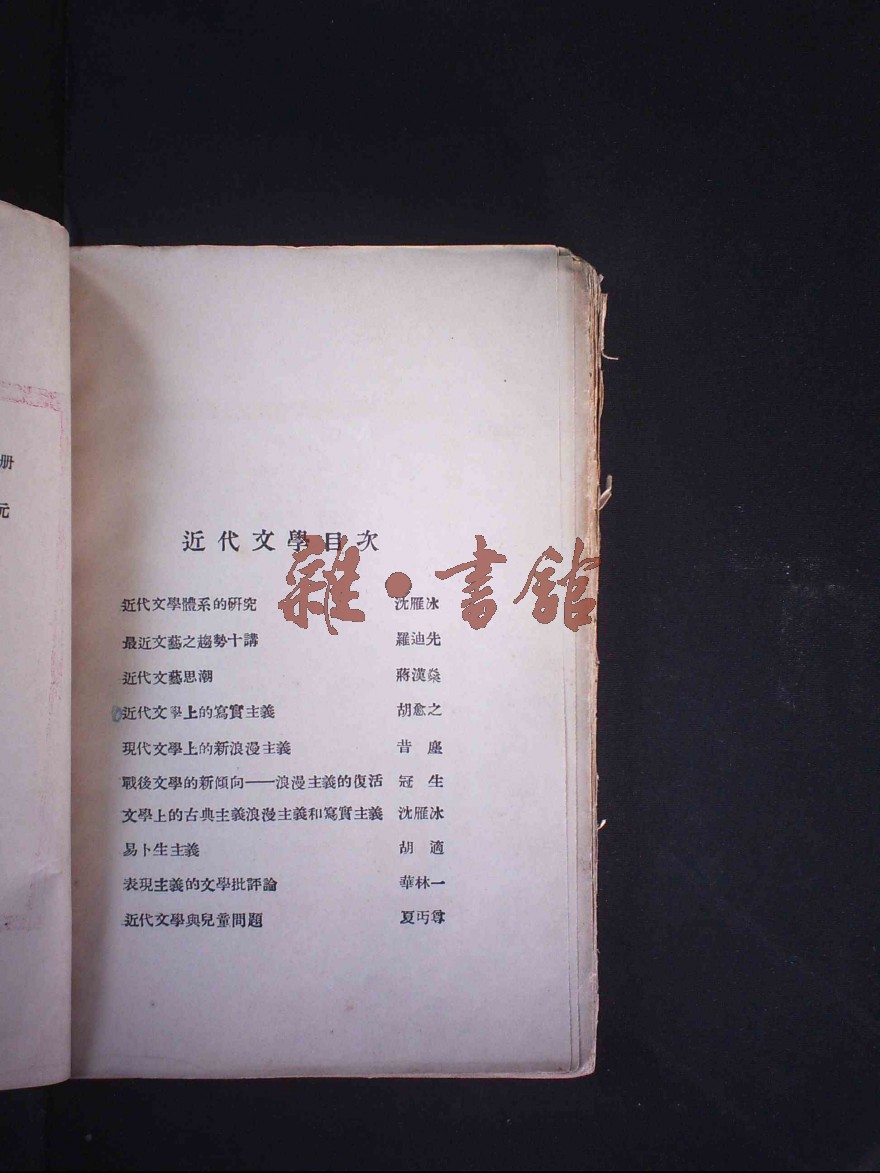 册
元
近代文學目次
近代文學體系的研究 沈雁冰
最近文藝之趨勢十講 羅迪先
近代文藝思潮 蔣漢燊
近代文學上的寫實主義 胡愈之
現代文學上的新浪漫主義 昔塵
戰後文學的新傾向——浪漫主義的復活 冠生
文學上的古典主義浪漫主義和寫實主義 沈雁冰
易卜生主義 胡適
表現主義的文學批評論 華林一
近代文學與兒童問題 夏丏尊
雜·書館